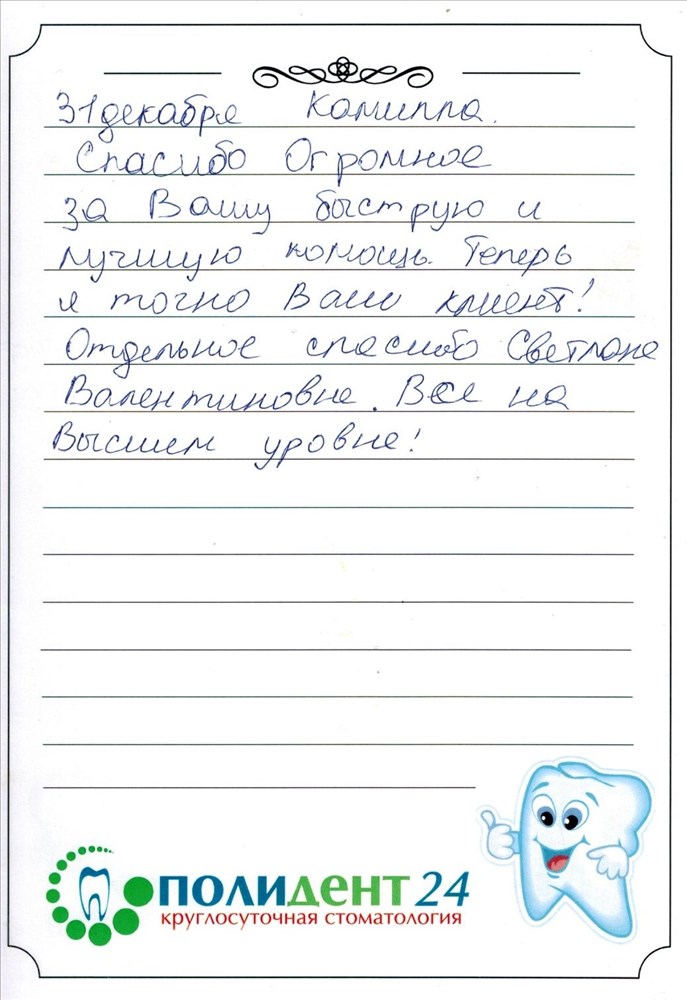 31 декабря Камилла.
Спасибо Огромное
за Вашу быструю и
лучшую помощь. Теперь
я точно Ваш клиент!
Отдельное спасибо Светлане
Валентиновне. Все на
Высшем уровне!
ПОЛИДЕНТ 24
круглосуточная стоматология